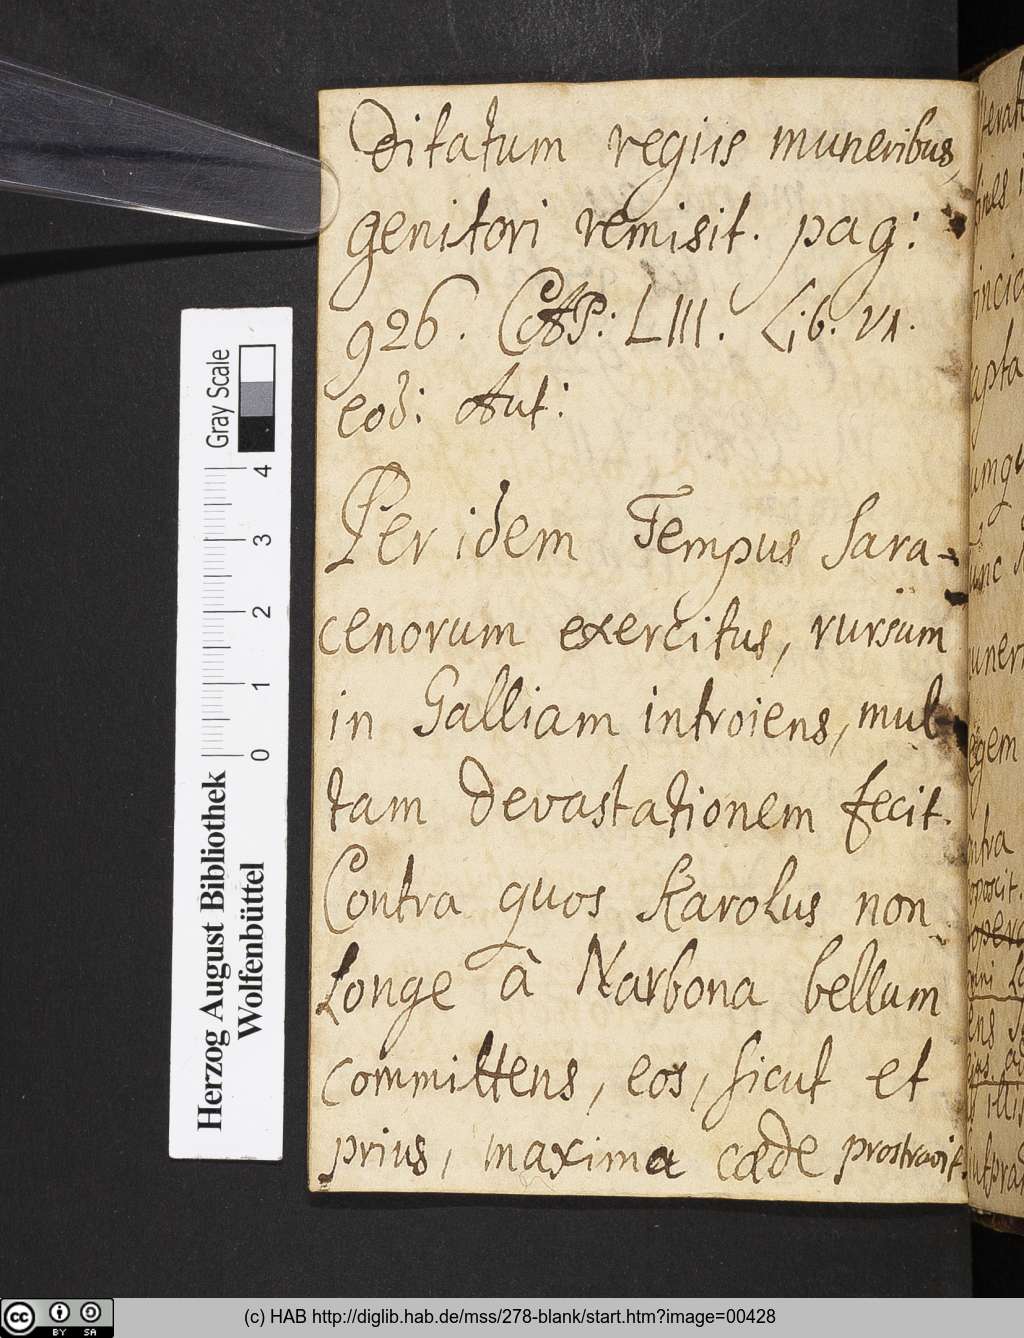 Ditatum regiis muneribus,
genitori remisit. pag:
926. CAP: LIII. Lib. VI.
eod: Aut:
Per idem Tempus Sara-
cenorum exercitus, rursum
in Galliam introiens, mul-
tam devastationem fecit.
Contra quos Karolus non
Longe à Narbona bellum
committens, eos, sicut et
prius, maxima cæde prostravit.
Gray Scale
0 1 2 3 4
Herzog August Bibliothek
Wolfenbüttel
cc BY SA
(c) HAB http://diglib.hab.de/mss/278-blank/start.htm?image=00428